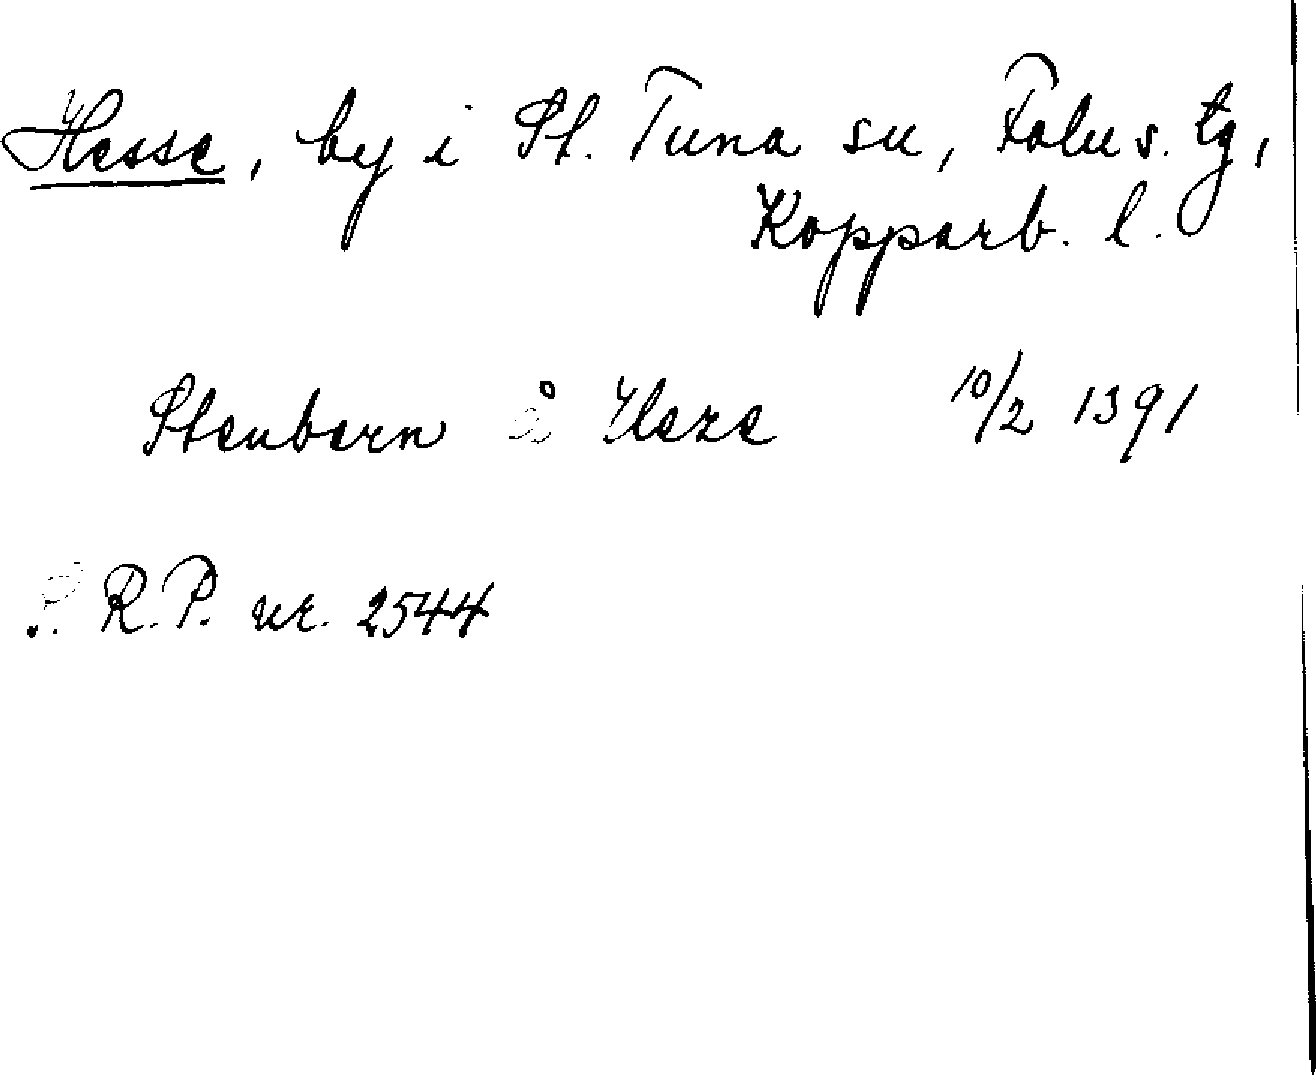 Hesse, by i St. Tuna sn, Falu s. tg,
Kopparb. l.
Stenbern å Heze 10/2 1391
S. R. P. nr. 2544